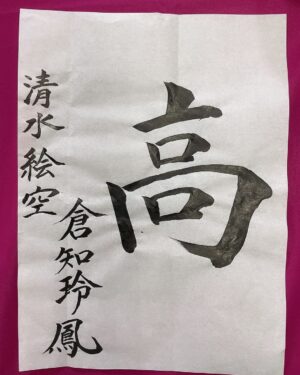 高
倉知玲鳳
清水絵空